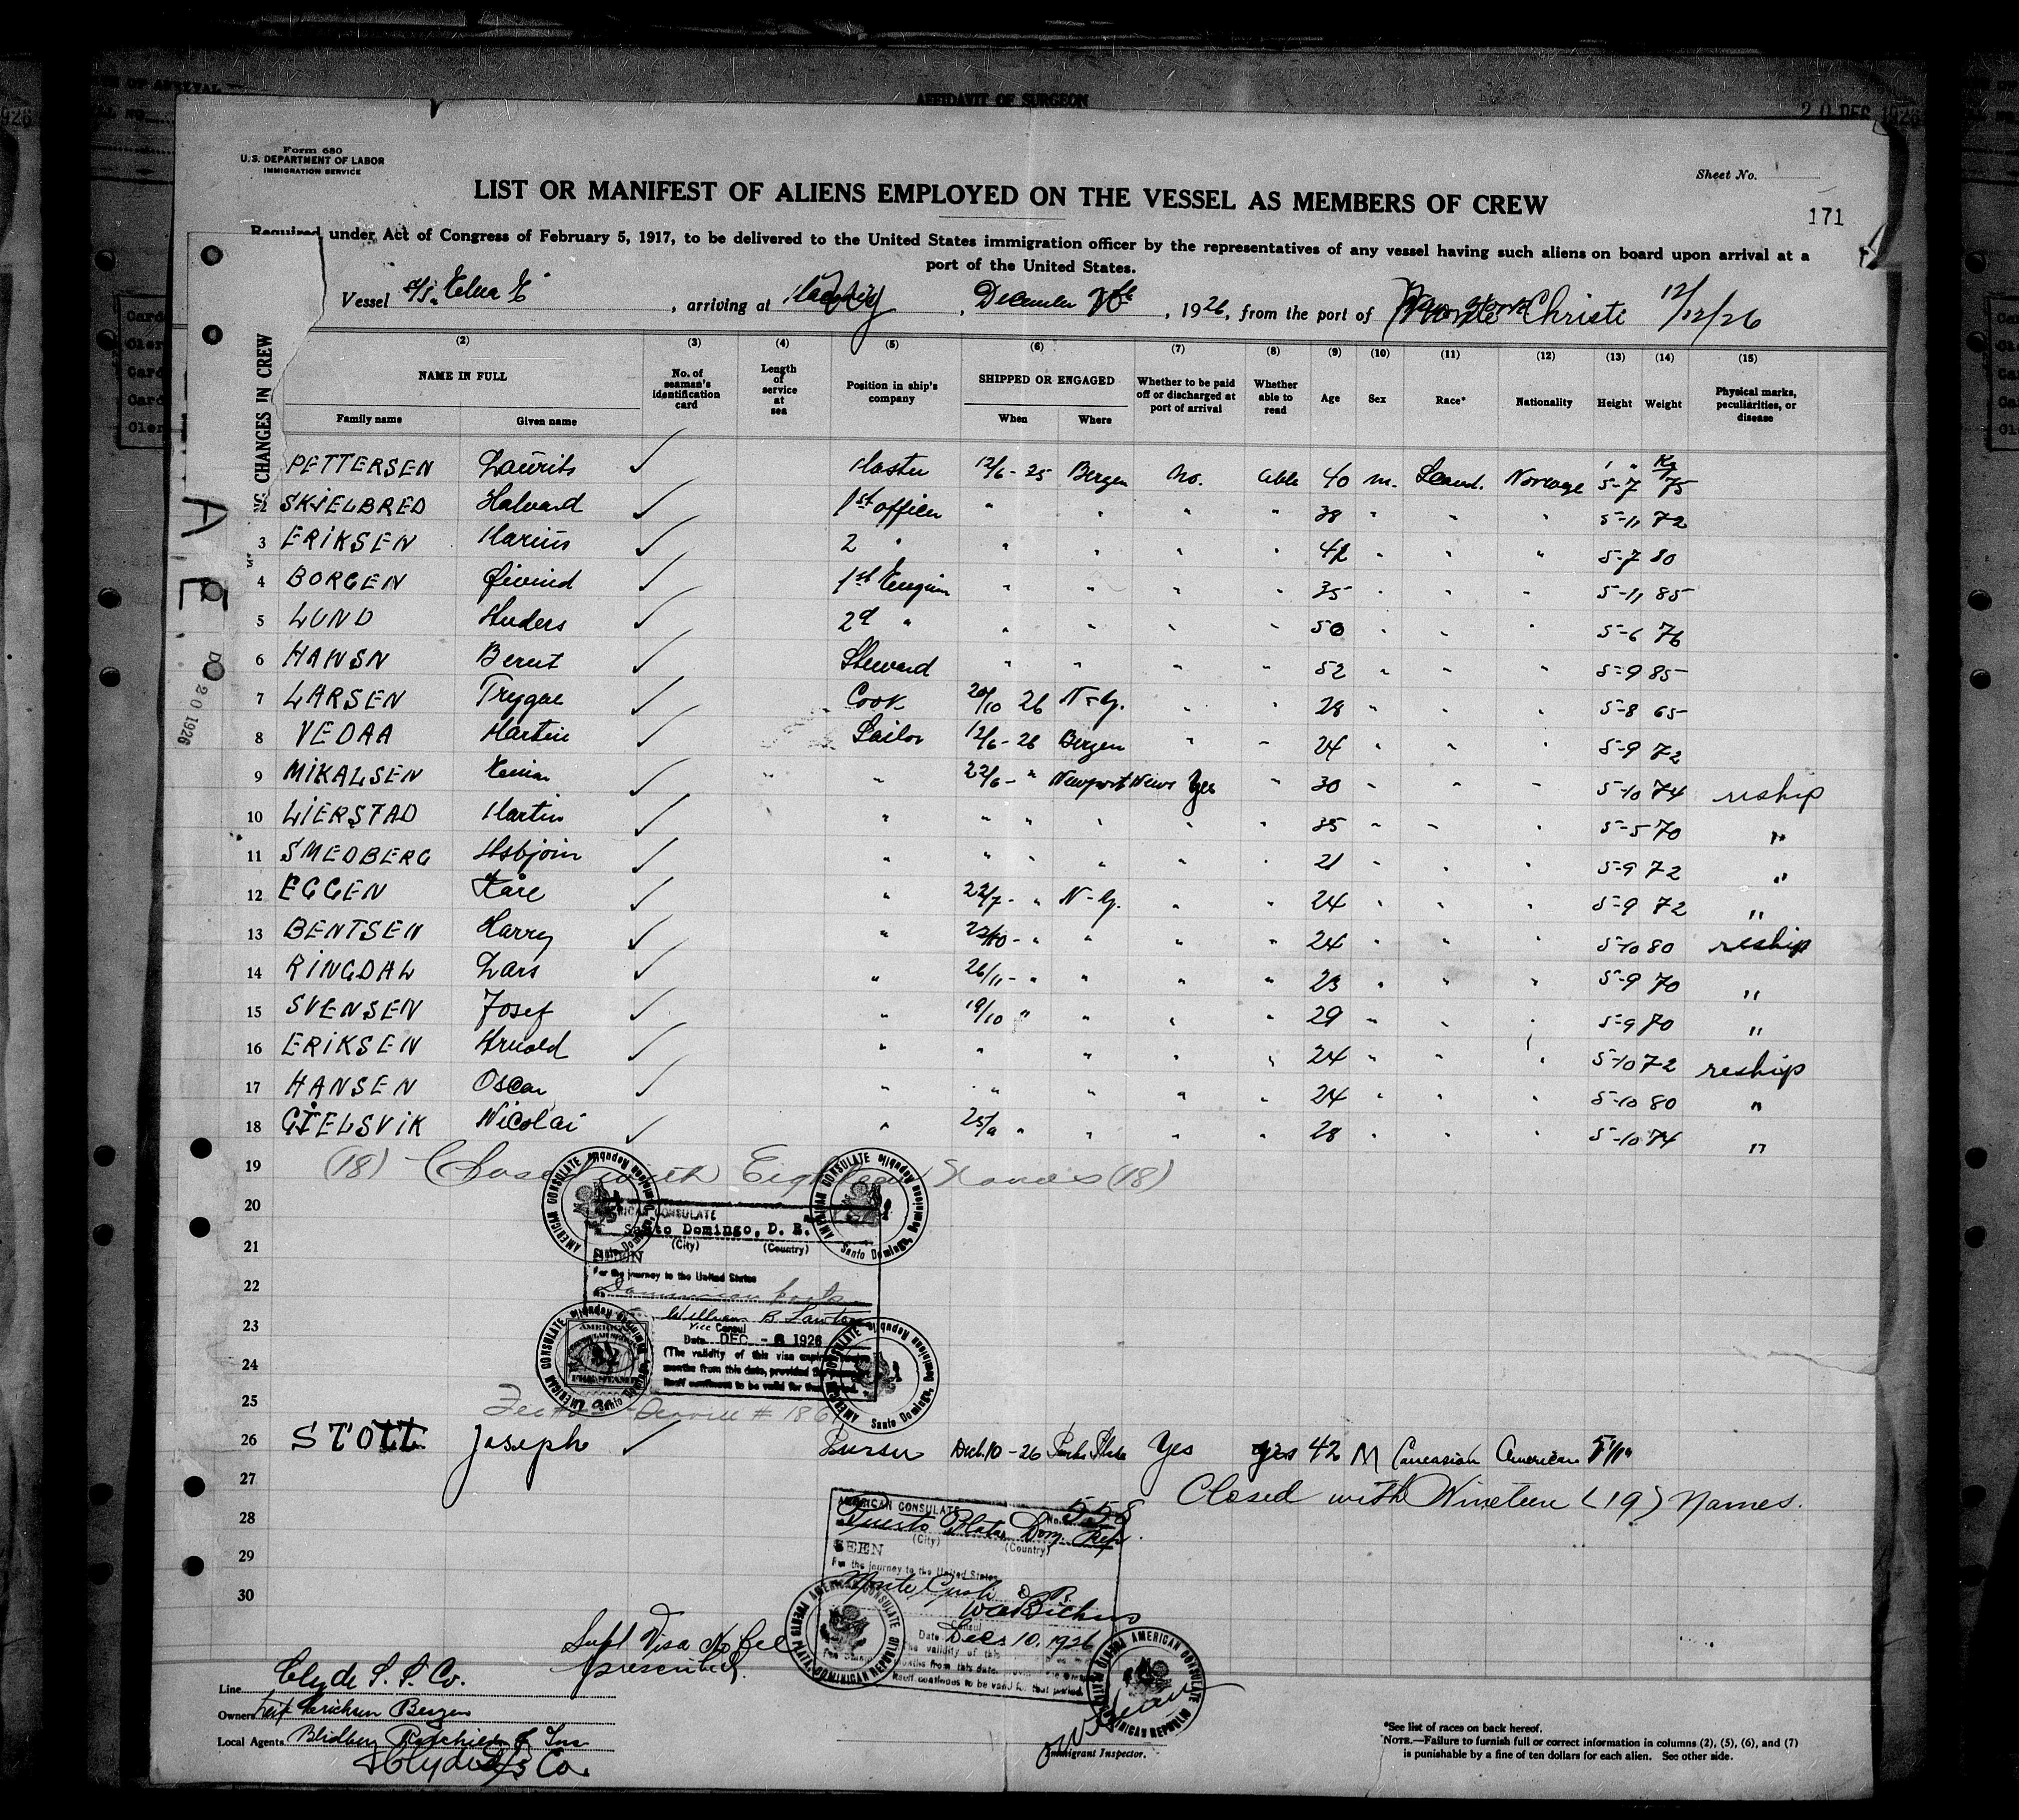 AFFIDAVIT OF SURGEON
20 DEC 1926
Form 680
U. S. DEPARTMENT OF LABOR
IMMIGRATION SERVICE
Sheet No.
LIST OR MANIFEST OF ALIENS EMPLOYED ON THE VESSEL AS MEMBERS OF CREW
171
Required under Act of Congress of February 5, 1917, to be delivered to the United States immigration officer by the representatives of any vessel having such aliens on board upon arrival at a
port of the United States.
Vessel S/S. Elna E, arriving at, December, 1926, from the port of Monte Christe 12/12/26
CHANGES IN CREW
(2) (3) (4) (5) (6) (7) (8) (9) (10) (11) (12) (13) (14) (15)
NAME IN FULL No. of seaman's identification card Length of service at sea Position in ship's company SHIPPED OR ENGAGED Whether to be paid off or discharged at port of arrival Whether able to read Age Sex Race* Nationality Height Weight Physical marks, peculiarities, or disease
Family name Given name When Where
PETTERSEN Laurits ✓ Master 12/6-25 Bergen No. able 40 m. Scand. Norwage 5-7 Kg 75
2 SKJELBRED Halvard ✓ 1st officer " " " " 38 " " " 5-11 72
3 ERIKSEN Marius ✓ 2 " " " " " 42 " " " 5-7 80
4 BORGEN Øivind ✓ 1st Engin " " " " 35 " " " 5-11 85
5 LUND Anders ✓ 2d " " " " " 50 " " " 5-6 76
6 HANSN Bernt ✓ Steward " " " " 52 " " " 5-9 85
7 LARSEN Trygve ✓ Cook 20/10 26 N-Y. " " 28 " " " 5-8 65
8 VEDAA Martin ✓ Sailor 12/6-26 Bergen " " 24 " " " 5-9 72
9 MIKALSEN ✓ " 22/6- " Newport News Yes " 30 " " " 5-10 74 reship
10 LIERSTAD Martin ✓ " " " " " " 35 " " " 5-5 70 "
11 SMEDBERG Asbjoin ✓ " " " " " " 21 " " " 5-9 72 "
12 EGGEN Kåre ✓ " 22/7- " N-Y. " " 24 " " " 5-9 72 "
13 BENTSEN Harry ✓ " 22/10- " " " " 24 " " " 5-10 80 reship
14 RINGDAL Lars ✓ " 26/11- " " " " 23 " " " 5-9 70 "
15 SVENSEN Josef ✓ " 19/10 " " " " 29 " " " 5-9 70 "
16 ERIKSEN Arnold ✓ " " " " " 24 " " " 5-10 72 reship
17 HANSEN Oscar ✓ " " " " " 24 " " " 5-10 80 "
18 GJELSVIK Nicolai ✓ " 25/9 " " " " 28 " " " 5-10 74 "
19 (18) Closed with Eighteen Names (18)
20
21
22
23
24
25
AMERICAN CONSULATE
Santo Domingo, D. R.
(City) (Country)
SEEN
For the journey to the United States
William B. Lawton
Vice Consul
Date DEC - 8 1926
(The validity of this visa expires
months from this date, provided the
itself continues to be valid for that
AMERICAN CONSULATE Santo Domingo, Dominican Republic
26 STOTT Joseph ✓ Purser Dec. 10-26 Yes yes 42 M Caucasian American 5'11"
27 Closed with Nineteen (19) Names.
28
29
30
AMERICAN CONSULATE No. 558
Puerto Plata Dom. Rep.
(City) (Country)
SEEN
For the journey to the United States
Consul
Date Dec. 10, 1926
The validity of this
months from this date
itself continues to be valid for that period.
AMERICAN CONSULATE PUERTO PLATA, DOMINICAN REPUBLIC
Supl Visa No fee
prescribed.
Line Clyde S. S. Co.
Owners Leif Erichsen Bergen
Local Agents
& Clyde S/S Co.
Immigrant Inspector.
*See list of races on back hereof.
NOTE.—Failure to furnish full or correct information in columns (2), (5), (6), and (7)
is punishable by a fine of ten dollars for each alien. See other side.